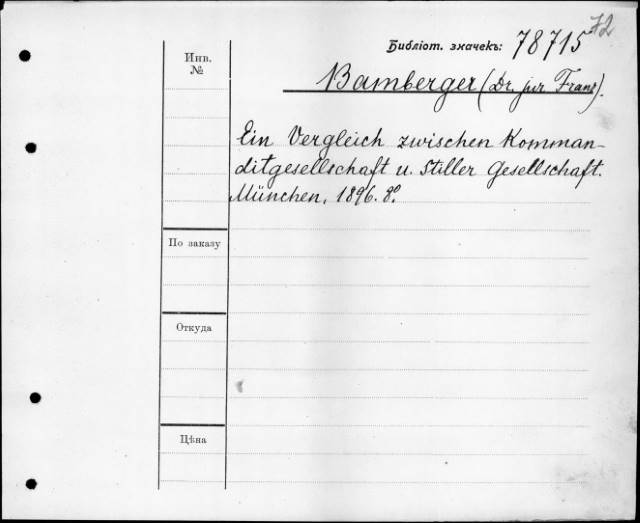 72
Библіот. значекъ: 78715
Инв.
№
Bamberger (Dr. jur Franz).
Ein Vergleich zwischen Komman-
ditgesellschaft u. Stiller Gesellschaft.
München, 1896. 8º.
По заказу
Откуда
Цѣна